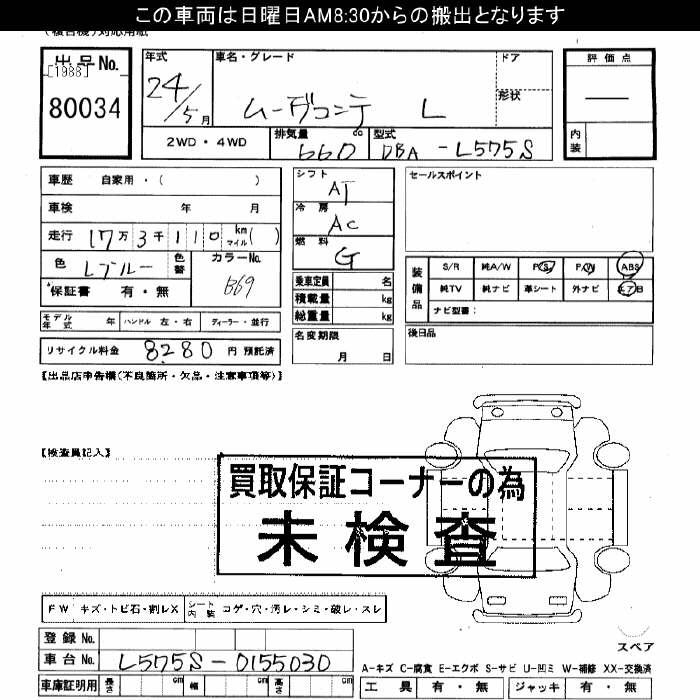 この車両は日曜日AM8:30からの搬出となります
(複合機)対応用紙
出品No.
[1988]
80034
年式
24/5月
車名・グレード
ムーヴコンテ L
ドア
形状
評価点
内装
2WD・4WD
排気量
660 cc
型式
DBA-L575S
車歴 自家用・( )
車検 年 月
走行 17万3千110 km マイル( )
色 Lブルー
色替
カラーNo.
B69
*保証書 有・無
シフト
AT
冷房
AC
燃料
G
乗車定員 名
積載量 kg
総重量 kg
名変期限
月 日
セールスポイント
装備品
S/R 純A/W P/S P/W ABS
純TV 純ナビ 革シート 外ナビ エアB
ナビ型番:
後日品
モデル年式 年 ハンドル 左・右 ディーラー・並行
リサイクル料金 8280 円 預託済
【出品店申告欄(不良箇所・欠品・注意事項等)】
【検査員記入】
買取保証コーナーの為
未検査
FW キズ・トビ石・割レX シート内装 コゲ・穴・汚レ・シミ・破レ・スレ
スペア
登録No.
車台No. L575S-0155030
車庫証明用 長さ cm 幅 cm 高さ cm
A-キズ C-腐食 E-エクボ S-サビ U-凹ミ W-補修 XX-交換済
工具 有・無 ジャッキ 有・無